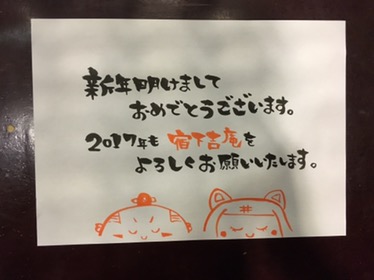 新年明けまして
おめでとうございます。
2017年も 宿下吉庵を
よろしくお願いいたします。